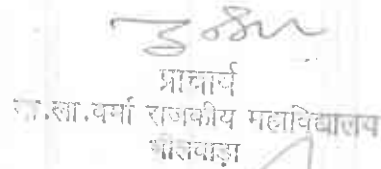 प्राचार्य
ला.वर्मा राजकीय महाविद्यालय
भीलवाड़ा